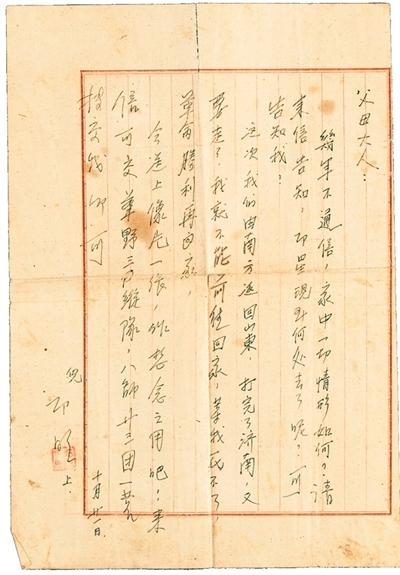 父母大人:
幾年不通信,家中一切情形如何?請
來信告知,印現到何处去了呢?可一
告知我?
這次我们由南方返回山東 打完了济南,又
要走了,我就不能前往回家,
革命勝利再回家。
今送上像片一張,作想念之用吧!来
信可交華野三縱隊,八師廿三团一
转交我即可
兒 印 上
十月廿一日